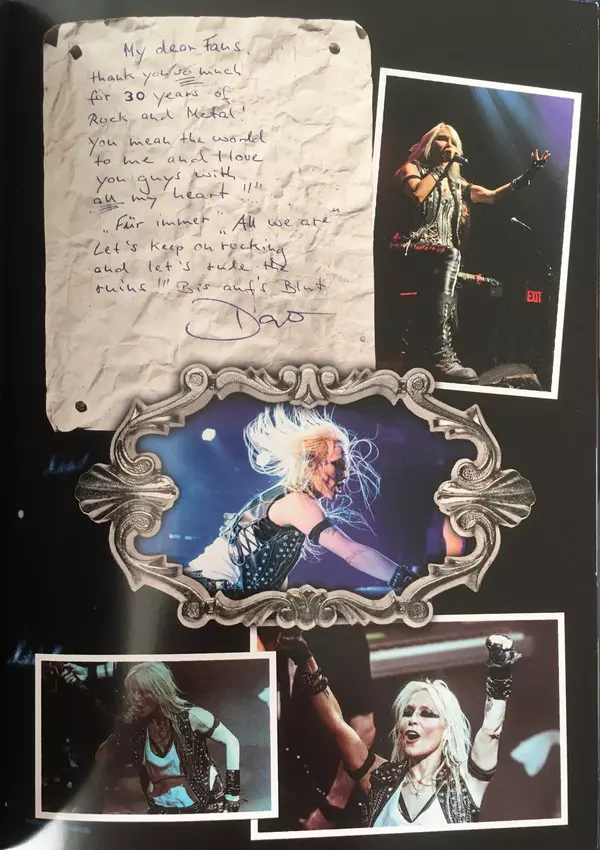 My dear Fans,
thank you so much
for 30 years of
Rock and Metal!
You mean the world
to me and I love
you guys with
all my heart !!!
„Für immer" „All we are"
Let's keep on rocking
and let's rule the
ruins!!! Bis auf's Blut
Doro
EXIT